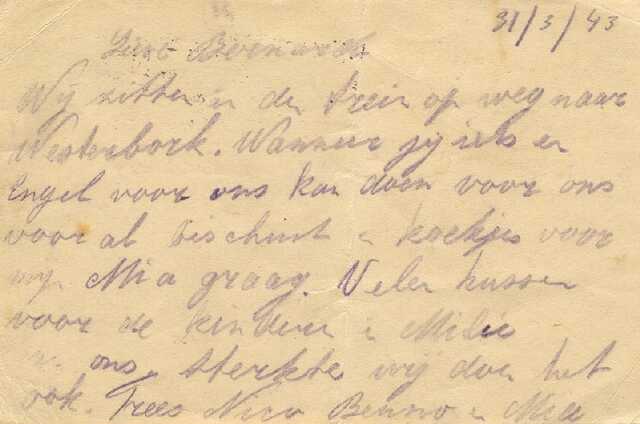 31/3/43
Lieve
Wij zitten in de trein op weg naar
Westerbork. Wanneer jij iets en
Engel voor ons kan doen voor ons
voor al bischuit en koekjes voor
mijn Mia graag. Velen kussen
voor de kinderen en
ons. Sterkte wij doen het
ook. Trees Nico Benno en Mia